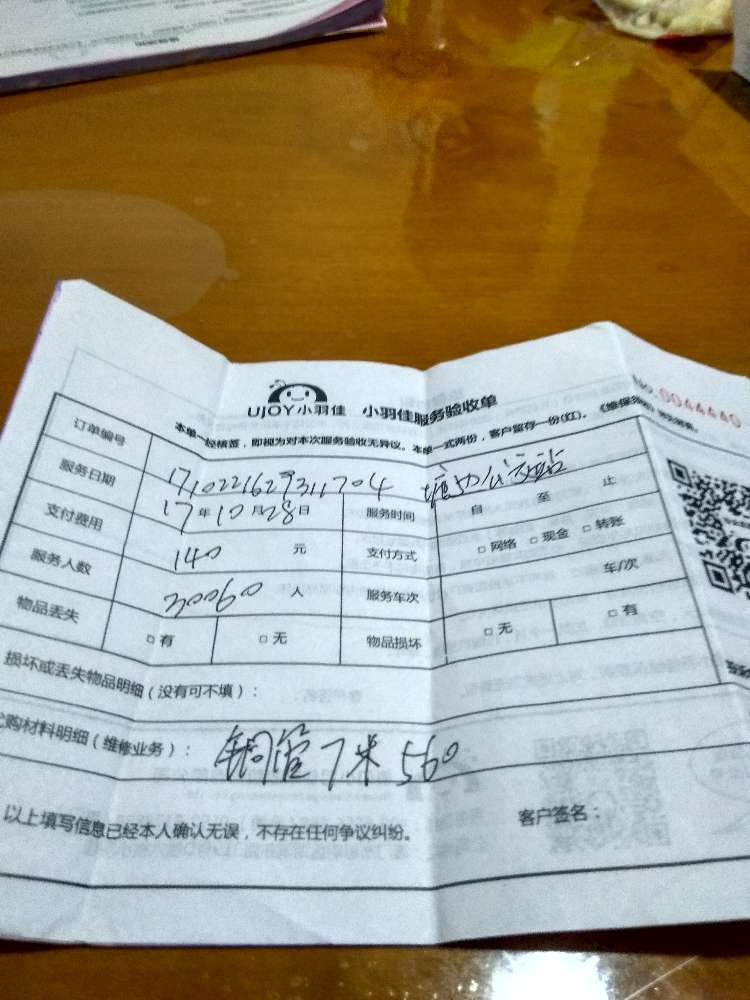 No. 0044440
UJOY小羽佳 小羽佳服务验收单
本单一经核签，即视为对本次服务验收无异议。本单一式两份，客户留存一份(红)。
订单编号 1710221629311704
服务日期 17年10月28日 服务时间 自 至 止
支付费用 140 元 支付方式 □网络 □现金 □转账
服务人数 30060 人 服务车次 车/次
物品丢失 □有 □无 物品损坏 □无 □有
损坏或丢失物品明细（没有可不填）：
购材料明细（维修业务）： 铜管7米560
以上填写信息已经本人确认无误，不存在任何争议纠纷。 客户签名：